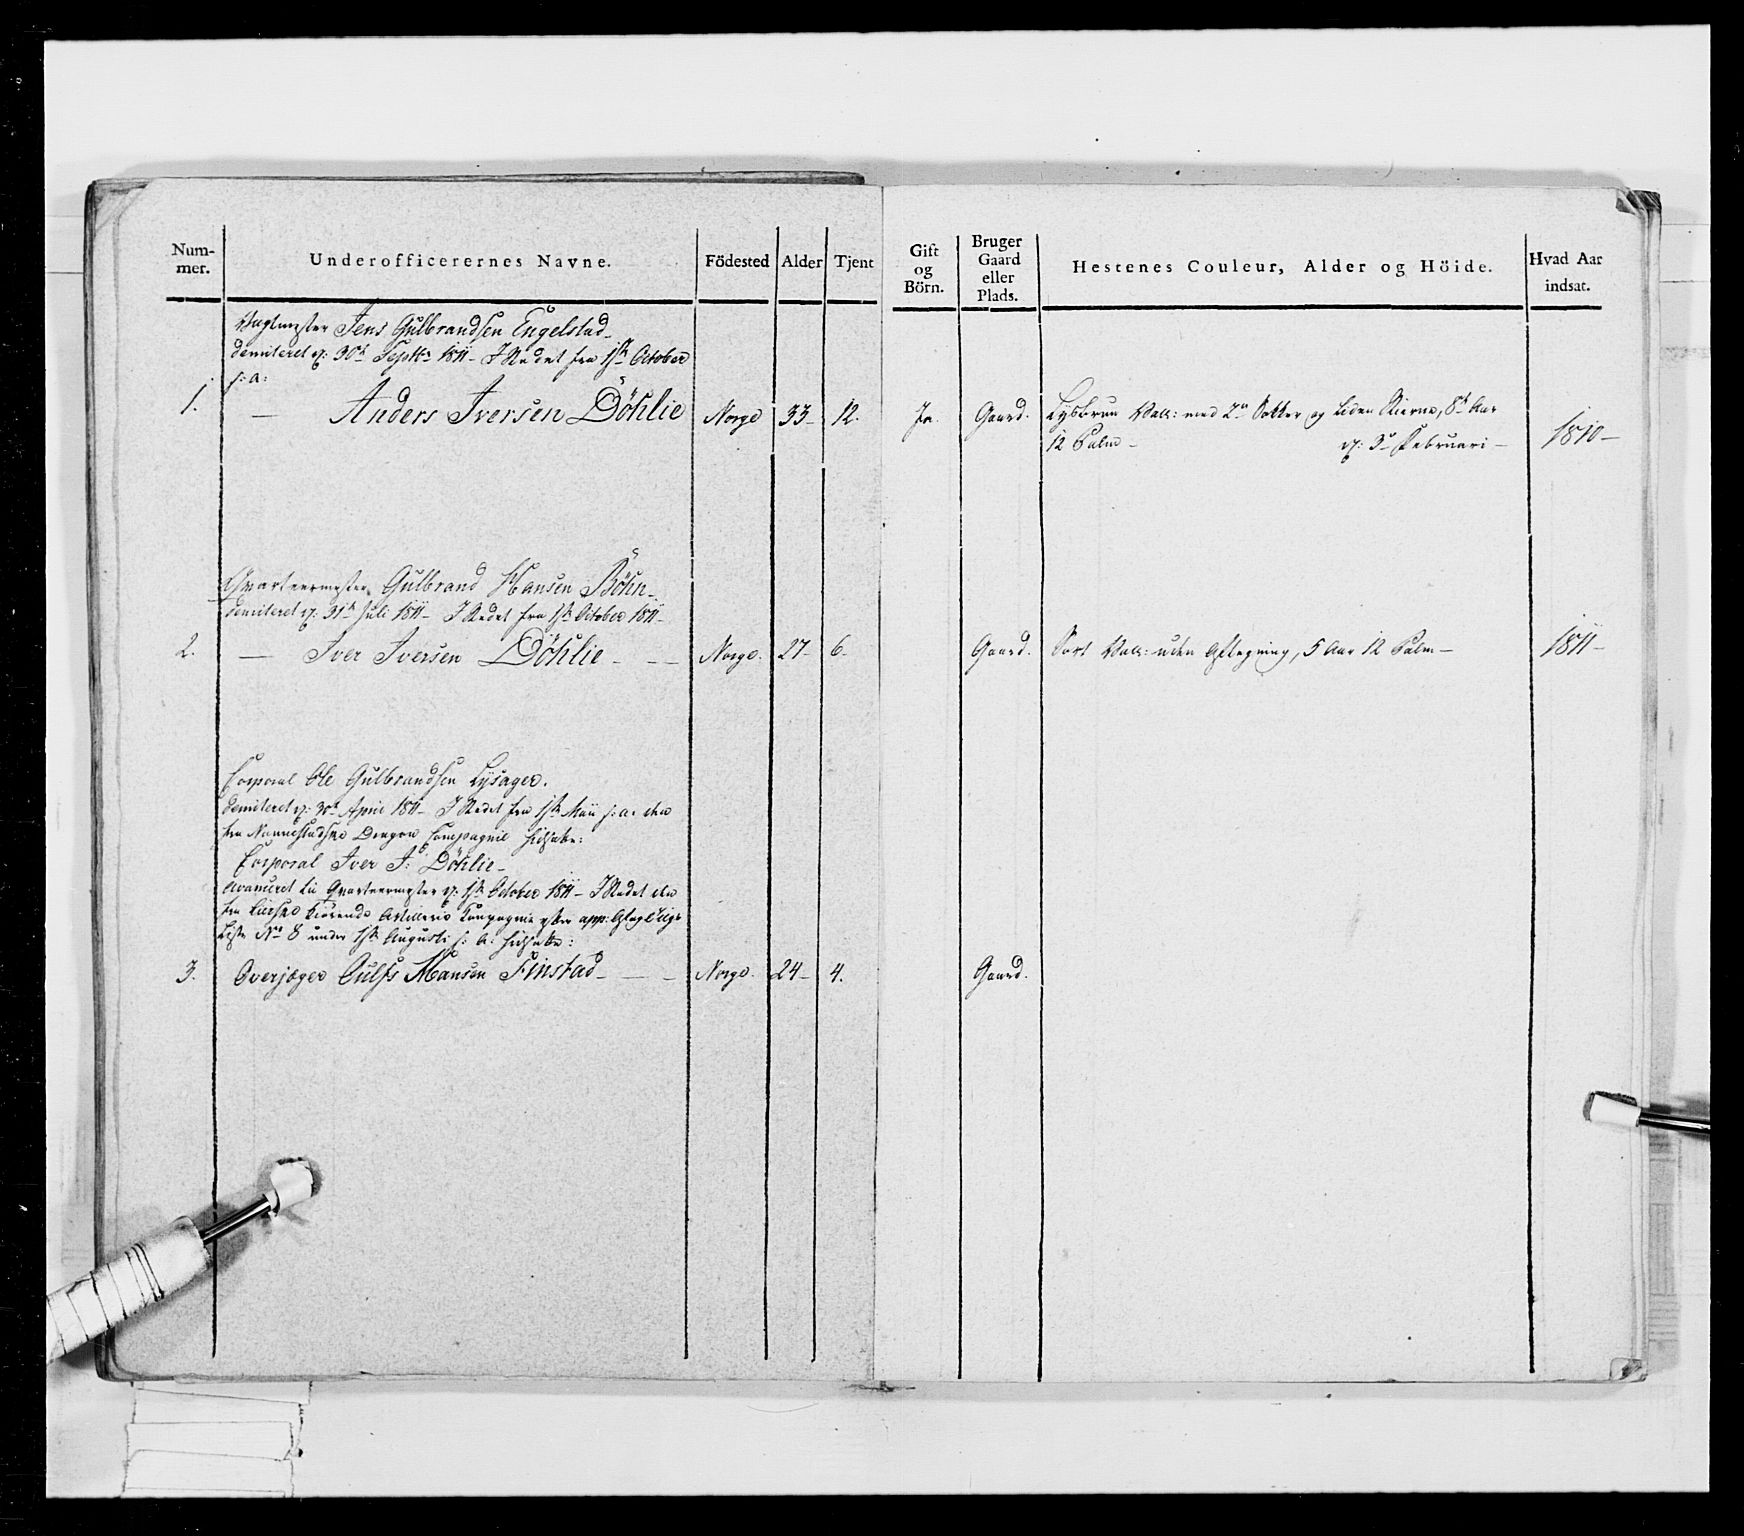 Num-
mer.
Underofficerernes Navne.
Födested
Alder
Tjent
Gift
og
Börn.
Bruger
Gaard
eller
Plads.
Hestenes Couleur, Alder og Höide.
Hvad Aar
indsat.
Vagtmester Jens Gulbrandsen Engelstad
demiteret d: 30te Septbr 1811 - I Stedet fra 1ste October
s: a:
1. — Anders Iversen Döhlie Norge 33 12. Ja. Gaard. Lysbrun Vall: med 2de Sokker og liden Stierne, 8te Aar
12 Palm - d: 3de Februari - 1810 -
Qvarteermester Gulbrand Hansen Böhn
demiteret d: 31te Juli 1811 - I Stedet fra 1ste October 1811 -
2. — Iver Iversen Döhlie - - - Norge. 27 6 Gaard. Sort Vall: uden Aftegning, 5 Aar 12 Palm - 1811 -
Corporal Ole Gulbrandsen Lysager.
demiteret d: 30te April 1811 - I Stedet fra 1ste Maii s: a: den
fra Nannestadske Dragon Compagnie
Corporal Iver I: Döhlie -
Avanceret til Qvarteermester d: 1ste October 1811 - I Stedet den
fra Kiörende Artillerie Compagnie
Liste No 8 under 1ste Augusti s: a:
3. Overjæger Gulbr Hansen Finstad - - - Norge. 24 4. Gaard.